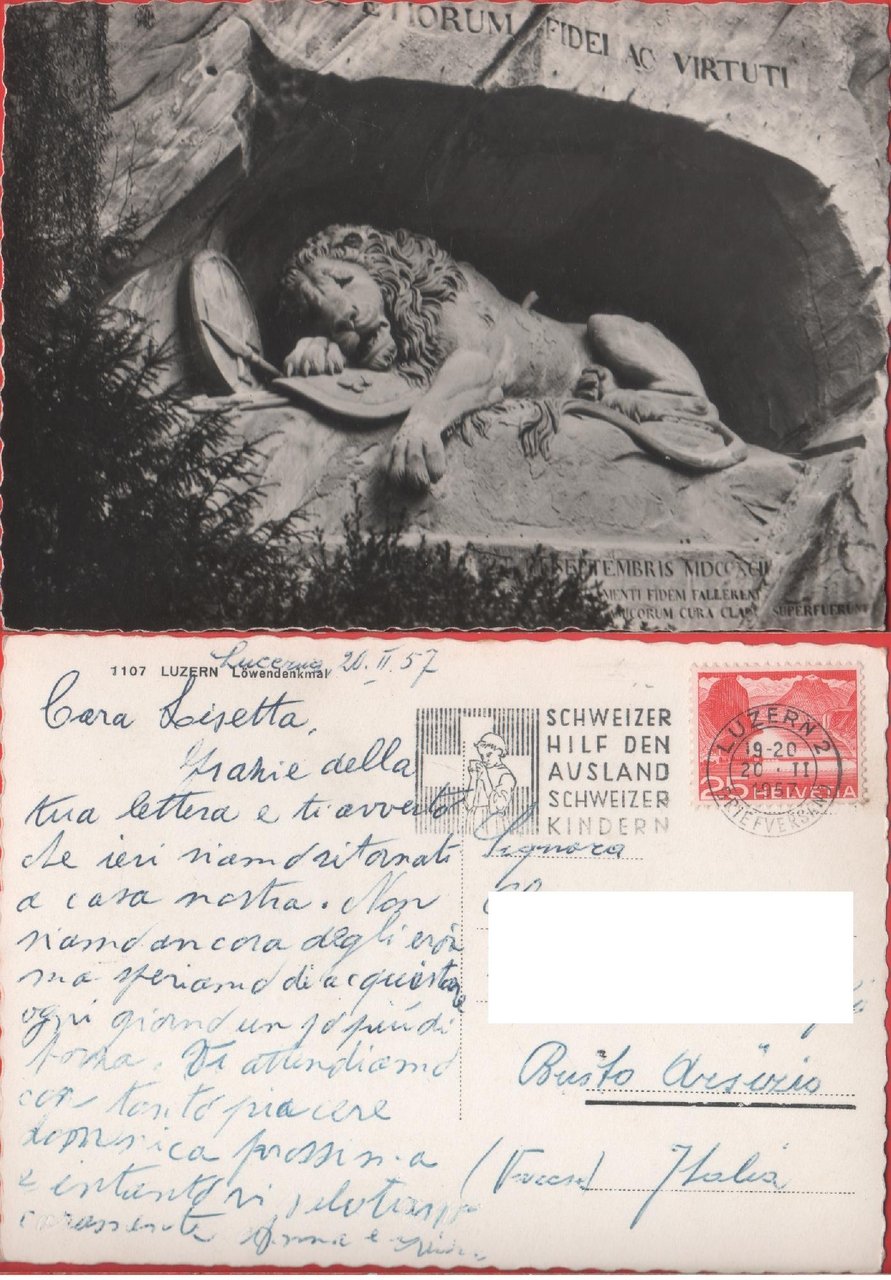 ETIORUM FIDEI AC VIRTUTI
SEPTEMBRIS MDCCXCII
MENTI FIDEM FALLERENT
ICORUM CURA CLAD SUPERFUERUNT
1107 LUZERN Löwendenkmal
Lucerna 20.II.57
Cara Lisetta,
Grazie della
tua lettera e ti avverto
che ieri siamo ritornati
a casa nostra. Non
siamo ancora degli eroi
ma speriamo di acquistare
ogni giorno un po più di
forza. Ti attendiamo
con tanto piacere
domenica prossima
e intanto vi
Anna e
SCHWEIZER
HILF DEN
AUSLAND
SCHWEIZER
KINDERN
LUZERN 2
19-20
20·II
1957
BRIEFVERSAND
25 HELVETIA
Signora
Busto Arsizio
(Varese) Italia